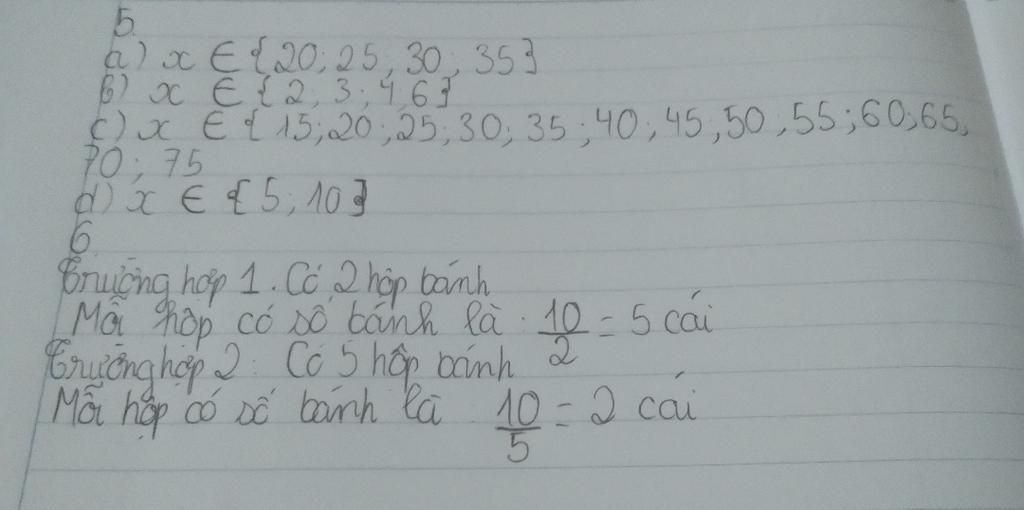 5
a) x ∈ {20; 25; 30; 35}
b) x ∈ {2; 3; 4; 6}
c) x ∈ { 15; 20; 25; 30; 35; 40; 45; 50; 55; 60; 65;
70; 75
d) x ∈ {5; 10}
6
Trường hợp 1. Có 2 hộp bánh
Mỗi hộp có số bánh là: 10/2 = 5 cái
Trường hợp 2: Có 5 hộp bánh
Mỗi hộp có số bánh là 10/5 = 2 cái